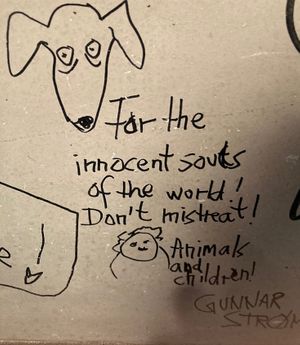 For the
innocent souls
of the world!
Don't mistreat!
Animals
and
children!
GUNNAR